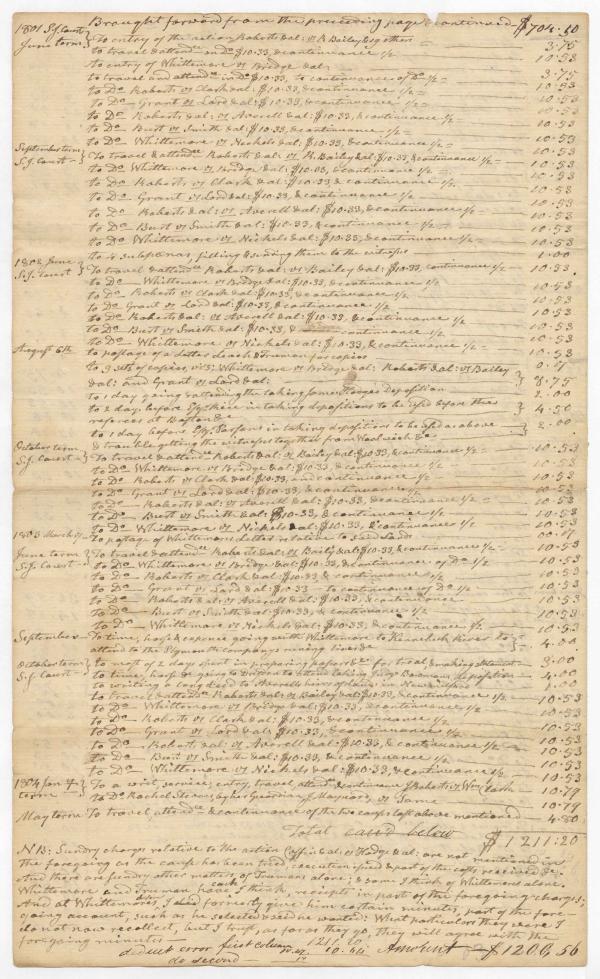 Brought forward from the preceding page & continued — $704.50
1801 S.J. Court June term } To entry of the action Roberts & al: vs R Bailey Esq & others — 3.75
to travel & attendce in Do $10.33 & continuance 1/2 — 10.53
to entry of Whittemore vs Bridge & al — 3.75
to travel and attendce in Do $10.33, to continuance of Do 1/2 = 10.53
to Do Roberts vs Clark & al: $10.33, & continuance 1/2 = 10.53
to Do — Grant vs Lord & al: $10.33, & continuance 1/2 = 10.53
to Do Roberts & al: vs Averell & al: $10.33, & continuance 1/2 — 10.53
to Do — Bust vs Smith & al: $10.33, & continuance 1/2 — 10.53
to Do — Whittemore vs Nickels & al: $10.33, & continuance 1/2 — 10.53
September term S.J. Court } To travel & attendce Roberts & al: vs R. Bailey & al: $10.33, & continuance 1/2 — 10.53
to Do Whittemore vs Bridge & al: $10.33, & continuance 1/2 — 10.53
to Do — Roberts vs Clark & al: $10.33 & continuance 1/2 — 10.53
to Do — Grant vs Lord & al: $10.33, & continuance 1/2 — 10.53
to Do — Roberts & al: vs Averell & al: $10.33, & continuance 1/2 — 10.53
to Do — Bust vs Smith & al: $10.33, & continuance 1/2 — 10.53
to Do — Whittemore vs Nickels & al: $10.33, & continuance 1/2 — 10.53
to 4 subpœnas, filling & giving them to the witnesses — 1.00
1802 June S.J. Court } To travel & attendce Roberts & al: vs Bailey & al: $10.33, continuance 1/2 — 10.53
to Do — Whittemore vs Bridge & al: $10.33, & continuance 1/2 — 10.53
to Do — Roberts vs Clark & al: $10.33, & continuance 1/2 — 10.53
to Do — Grant vs Lord & al: $10.33, & continuance 1/2 — 10.53
to Do — Roberts & al: vs Averell & al: $10.33, & continuance 1/2 — 10.53
to Do — Bust vs Smith & al: $10.33, & continuance 1/2 — 10.53
to Do — Whittemore vs Nickels & al: $10.33, & continuance 1/2 — 10.53
August 6th to postage of a letter Truman for copies — 0.17
to 3 sets of copies, viz: Whittemore vs Bridge & al: Roberts & al: vs Bailey
& al: and Grant vs Lord & al: } 8.75
to 1 day going & attending the taking James Deposition — 2.00
to 2 days before Esqr in taking depositions to be used before the
referees at Boston &c } 4.50
to 1 day before Esqr Parsons in taking depositions to be used as above
& trouble getting the witnesses together from Woolwich &c } 2.00
October term S.J. Court } To travel & attendce Roberts & al: vs Bailey & al: $10.33, & continuance 1/2 — 10.53
to Do — Whittemore vs Bridge & al: $10.33, & continuance 1/2 — 10.53
to Do — Roberts vs Clark & al: $10.33, and continuance 1/2 — 10.53
to Do — Grant vs Lord & al: $10.33, & continuance 1/2 — 10.53
to Do — Roberts & al: vs Averell & al: $10.33, & continuance 1/2 — 10.53
to Do — Bust vs Smith & al: $10.33, & continuance 1/2 — 10.53
to Do — Whittemore vs Nickels & al: $10.33, & continuances 1/2 — 10.53
1803 March to postage of Whittemores Letter relative to said Lands — 00.17
June term S.J. Court } To travel & attendce Roberts & al: vs Baily & al: $10.33, & continuances 1/2 — 10.53
to Do — Whittemore vs Bridge & al: $10.33, & continuance of Do 1/2 — 10.53
to Do — Roberts vs Clark & al: $10.33 & continuance 1/2 — 10.53
to Do — Grant vs Lord & al: $10.33 — to continuance of Do 1/2 — 10.53
to Do — Roberts & al: vs Averell & al: $10.33, & continuance — 10.53
to Do — Bust vs Smith & al: $10.33, & continuance 1/2 — 10.53
to Do — Whittemore vs Nickels & al: $10.33, & continuance 1/2 — 10.53
September — To time, horse & expence going with Whittemore to Kennebeck River to
attend to the Plymouth companys running lines &c } 4.00
October term S.J. Court } to most of 2 days spent in preparing papers &c for trial & making — 3.00
to time, horse & going to Dresden to attend taking Deposition — 4.00
to writing a long deed to Averells heirs of place in New — 1.00
to travel & attendce Roberts & al: vs Bailey & al: $10.33, & continuance 1/2 — 10.53
to Do — Whittemore vs Bridge & al: $10.33, & continuance 1/2 — 10.53
to Do — Roberts vs Clark & al: $10.33, & continuance 1/2 — 10.53
to Do — Grant vs Lord & al: $10.33, & continuance 1/2 — 10.53
to Do — Roberts & al: vs Averell & al: $10.33, & continuance 1/2 — 10.53
to Do — Bust vs Smith & al: $10.33, & continuance 1/2 — 10.53
to Do — Whittemore vs Nickels & al: $10.33, & continuance 1/2 — 10.53
1804 Jany term } To a writ, service, entry, travel attendce & continuance Roberts vs Wm Clark — 10.79
to Do Rachel Guardian vs Same — 10.79
May term To travel, attendce & continuance of the two cases last above mentioned — 4.80
Total cast'd below $1211:20
NB: Sundry charges relative to the action Coffin & al: vs Hodge & al: are not mentioned in
the foregoing as the cause has been tried, execution issued & part of the costs received &c.
And there are sundry other matters of Trumans alone; & some I think of Whittemores alone.
Whittemore and Truman have each I think, receipts in part of the foregoing charges.
And at Whittemores I also formerly give him certain minutes, part of the fore-
going account, such as he selected & said he wanted: What particulars they were I
do not now recollect, but I trust, as far as they go, they will agree with the
foregoing minutes —
deduct error first column 10.64 Amount — $1200,56
do second —